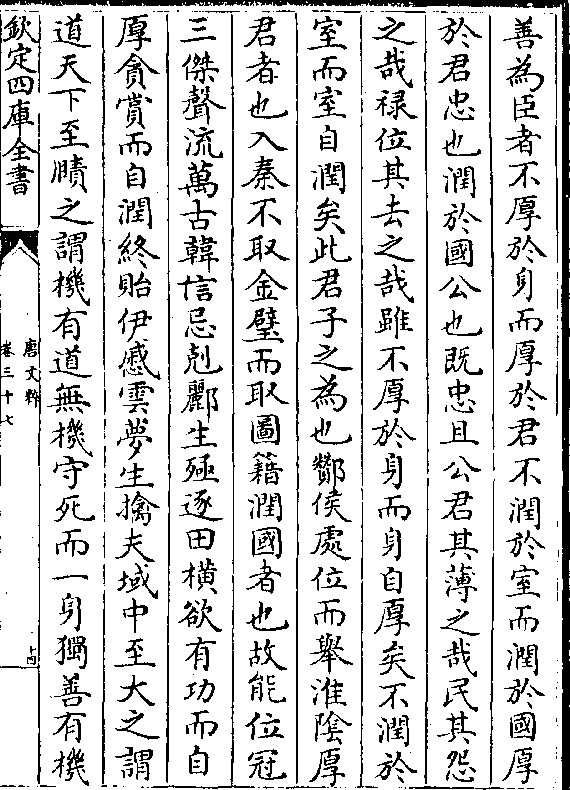 善為臣者不厚於身而厚於君不潤於室而潤於國厚
於君忠也潤於國公也既忠且公君其薄之哉民其怨
之哉禄位其去之哉雖不厚於身而身自厚矣不潤於
室而室自潤矣此君子之為也酇侯處位而舉淮陰厚
君者也入秦不取金璧而取圖籍潤國者也故能位冠
三傑聲流萬古韓信忌剋酈生殛逐田横欲有功而自
厚貪賞而自潤終貽伊慼雲夢生擒夫域中至大之謂
道天下至賾之謂機有道無機守死而一身獨善有機
欽定四庫全書
唐文粹
卷三十七
十四